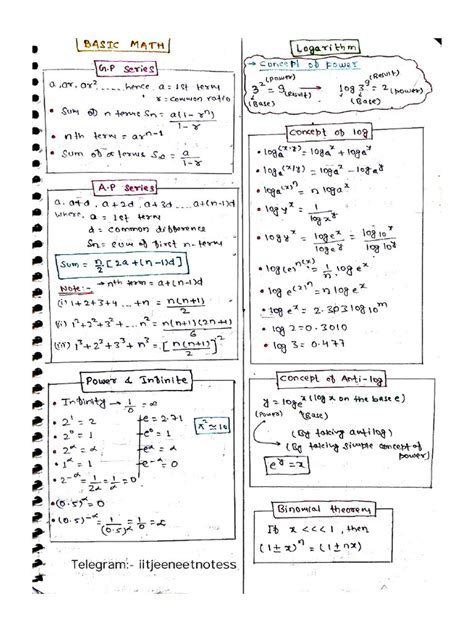 BASIC MATH
G.P series
a, ar, ar² ...... hence, a = 1st term
r = common ratio
• Sum of n terms Sn = a(1-rⁿ)/1-r
• nth term = arⁿ⁻¹
• Sum of ∝ terms S∝ = a/1-r
A.P series
a, a+d, a+2d, a+3d ..... a+(n-1)d
where, a = 1st term
d = common difference
Sn = sum of first n-term
Sum = n/2 [2a+(n-1)d]
→ nth term = a+(n-1)d
Note:-
(i) 1+2+3+4 ... +n = n(n+1)/2
(ii) 1²+2²+3²+ ... n² = n(n+1)(2n+1)/6
(iii) 1³+2³+3³+n³ = [n(n+1)/2]²
Power & Infinite
• Infinity → 1/0 = ∝
• 2¹ = 2
• e = 2.71
π² ≈ 10
• 2⁰ = 1
• e⁰ = 1
• 2^∝ = ∝
• e^∝ = ∝
• 1^∝ = 1
• e^-∝ = 0
• 2^-∝ = 1/2^∝ = 1/∝ = 0
• (0.5)^∝ = 0
• (0.5)^-∝ = 1/(0.5)^∝ = 1/0 = ∝
Telegram:- iitjeeneetnotess
Logarithm
→ Concept of power
3² = 9 (Result)
(power)
(Base)
log₃9 = 2 (power)
(Result)
(Base)
Concept of log
• logₐ(x.y) = logₐx + logₐy
• logₐ(x/y) = logₐx - logₐy
• logₐ(x)ⁿ = n logₐx
• log_y x = 1/log_x y
• log_y x = log_e x/log_e y = log₁₀x/log₁₀y
• log(eⁿ)(x) = 1/n log_e x
• log_e(x)ⁿ = n log_e x
• log_e x = 2.303 log₁₀m
• log 2 = 0.3010
• log 3 = 0.477
Concept of Anti-log
y = log_e x (log x on the base e)
(Power) (Base)
(By taking antilog)
(By taking simple concept of
power)
e^y = x
Binomial theorem
If x <<< 1, then
(1±x)ⁿ = (1±nx)